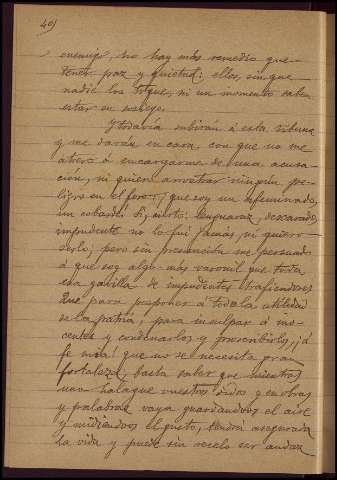 40)
enemigo, no hay más remedio que
tener paz y quietud: ellos, sin que
nadie los toque, ni un momento saben
estar en sosiego.
Y todavía subirán á esta tribuna
y me darán en cara, con que no me
atrevo á encargarme de una acusa-
ción, ni quiero arrostrar ningún pe-
ligro en el foro; que soy un afeminado,
un cobarde. Sí, cierto: lenguaraz, descarado,
impudente no lo fuí jamás, ni quiero
serlo; pero sin presunción me persuado
á que soy algo más varonil que toda
esa gavilla de impudentes trafiendores
Que para posponer á todo la utilidad
de la patria, para inculpar á ino-
centes y condenarlos y proscribirlos, ¡á
fe mía! que no se necesita gran
fortaleza; basta saber que mientras
uno halague vuestros oídos y en obras
y palabras vaya guardandoos el aire
y midiéndoos el gusto, tendrá asegurada
la vida y puede sin recelo ser audaz